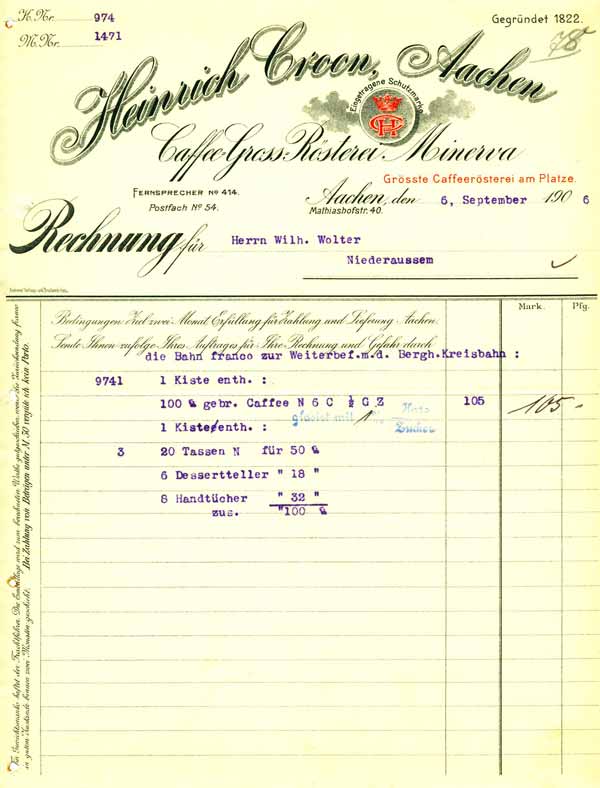 K.Nr. 974
M.Nr. 1471
Gegründet 1822.
78
Heinrich Croon, Aachen
Eingetragene Schutzmarke
HC
Caffee-Gross-Rösterei Minerva
Grösste Caffeerösterei am Platze.
Fernsprecher No 414.
Postfach No 54.
Aachen, den 6, September 1906
Mathiashofstr. 40.
Rechnung für Herrn Wilh. Wolter
Niederaussem
Mark. Pfg.
Bedingungen: Ziel zwei Monat. Erfüllung für Zahlung und Lieferung Aachen.
Sende Ihnen zufolge Ihres Auftrages für Ihre Rechnung und Gefahr durch
die Bahn franco zur Weiterbef.m.d. Bergh.Kreisbahn :
9741 1 Kiste enth. :
100 ℔ gebr. Caffee N 6 C ½ G Z 105 105.-
glasiert mit 1 % Harz Zucker
1 Kiste/enth. :
3 20 Tassen N für 50 ℔
6 Dessertteller " 18 "
8 Handtücher " 32 "
zus. "100 ℔
Für Gewichtsmanko haftet der Frachtführer. Die Emballage wird zum berechneten Werthe zurückgenommen, wenn sie franco
in gutem Zustande binnen zwei Monaten geschieht. Bei Zahlung von Beträgen unter M. 50 vergüte ich kein Porto.